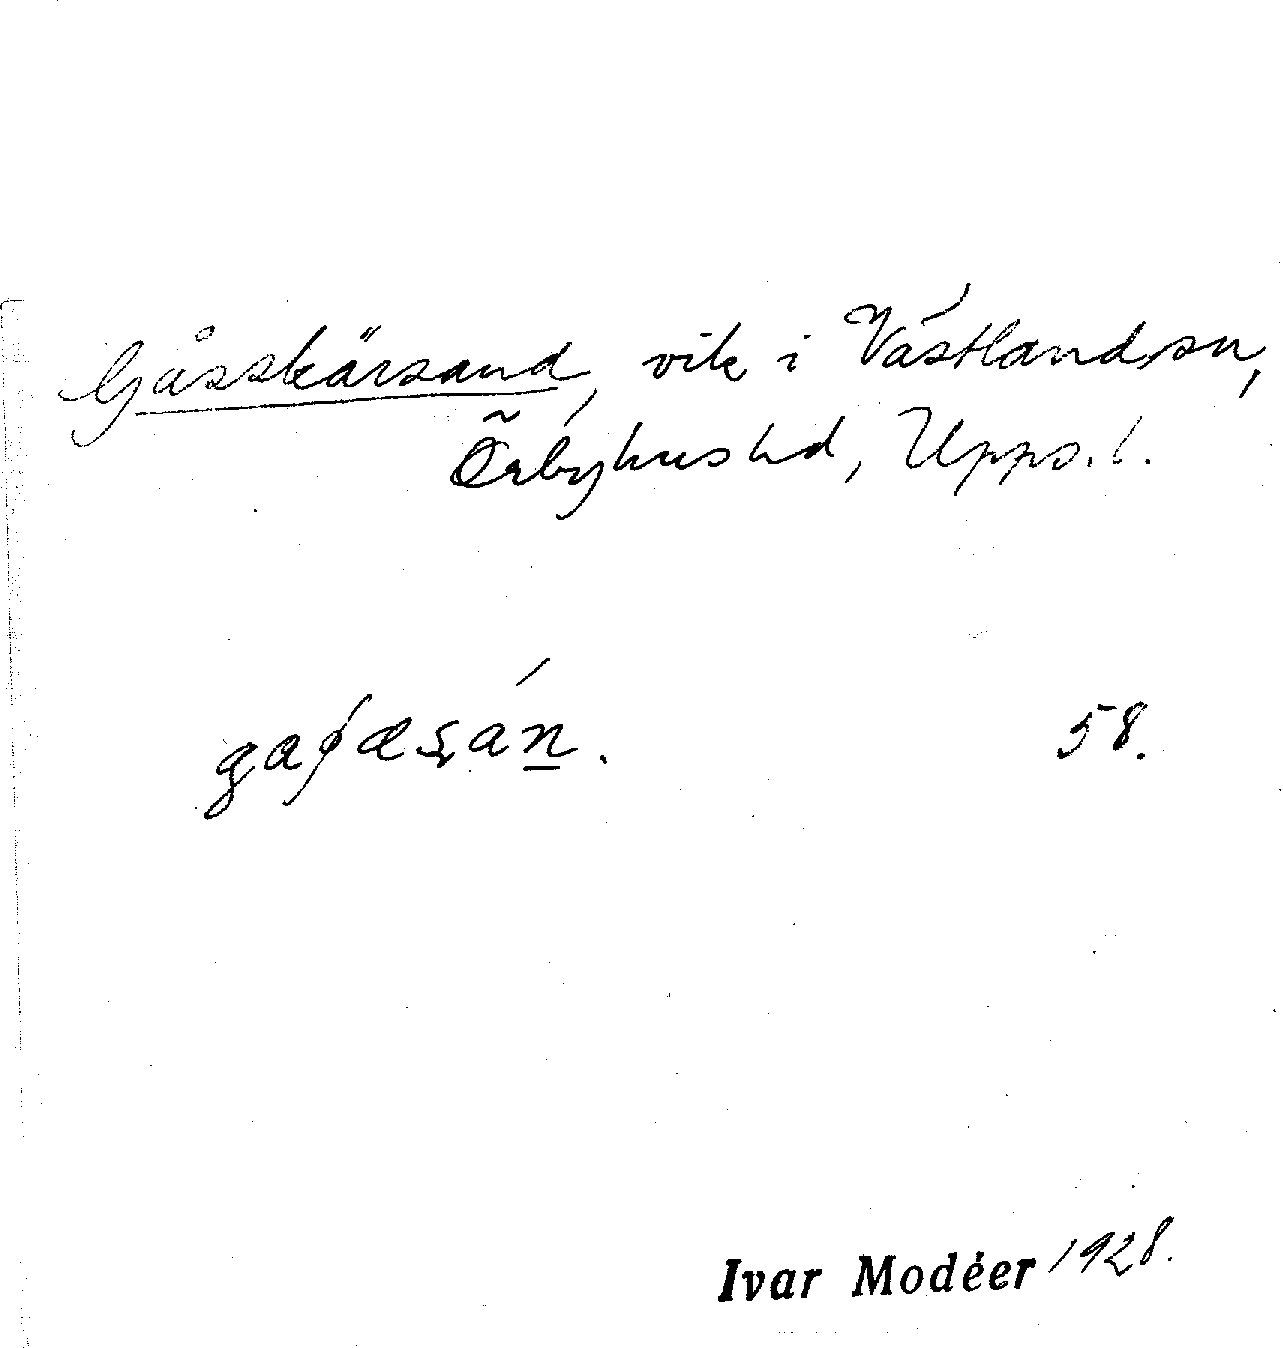 Gåsskärsand, vik i Västlands sn,
Örbyhus hd, Upps. l.
58.
Ivar Modéer 1928.